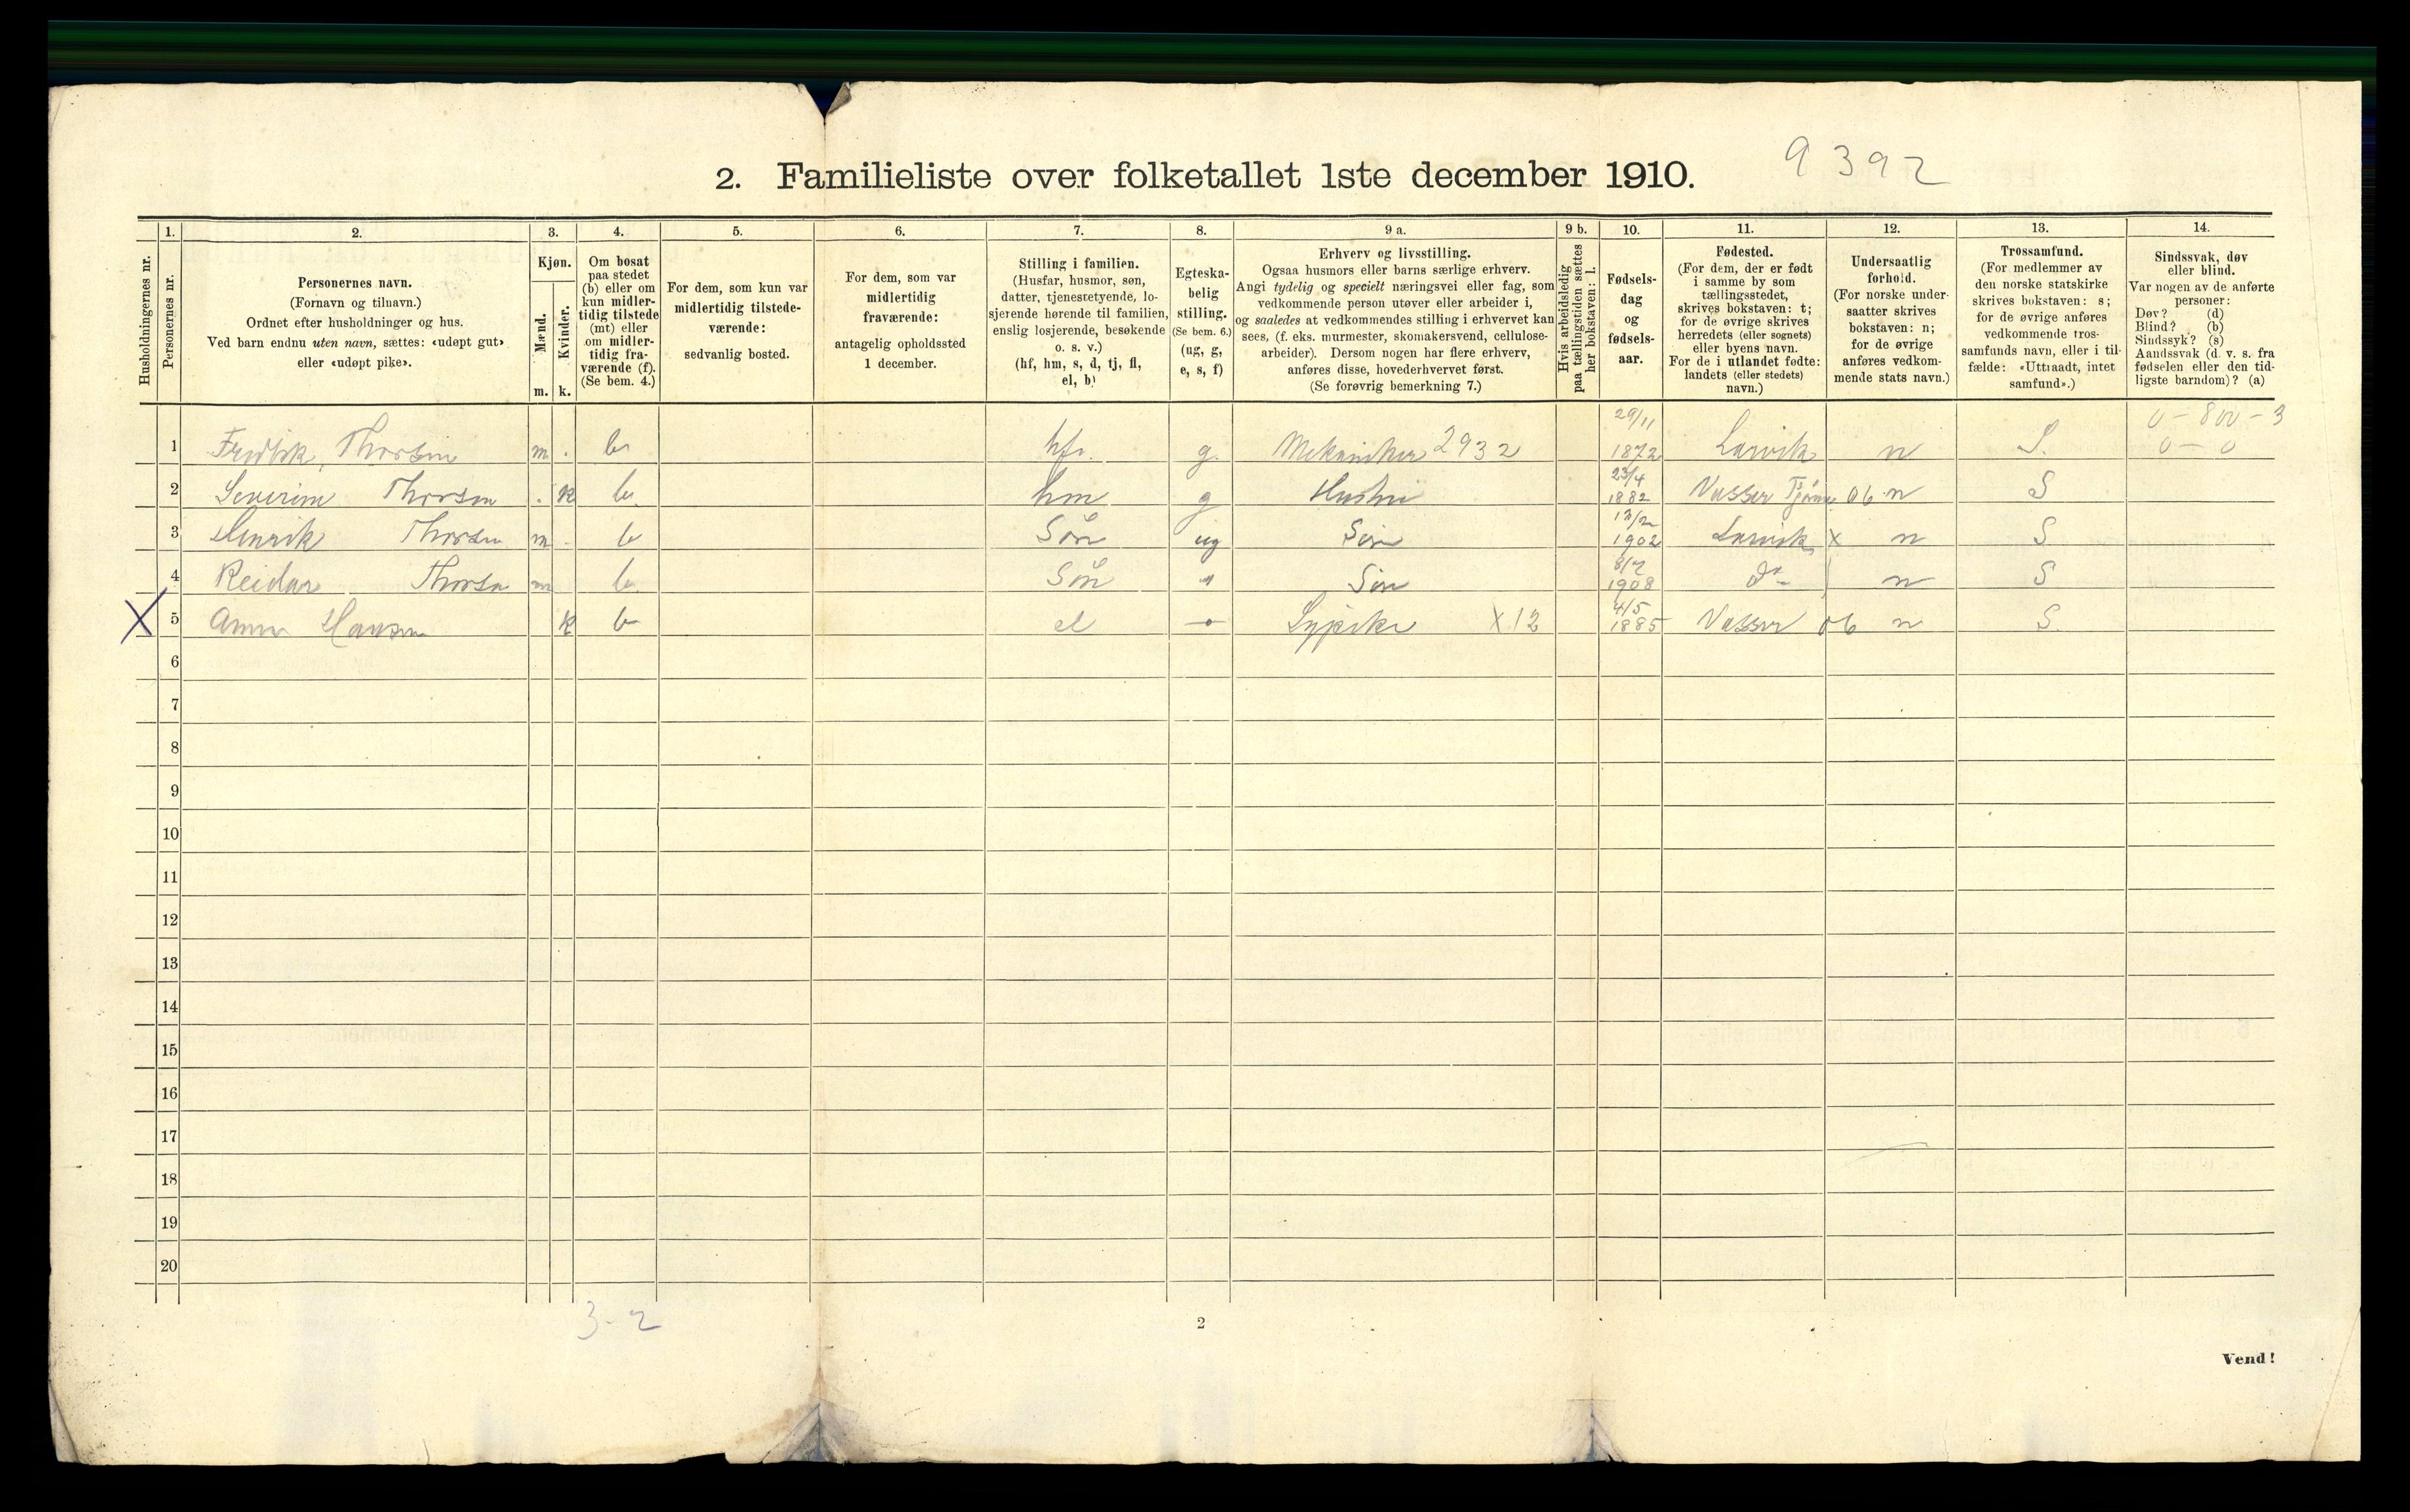 2. Familieliste over folketallet 1ste december 1910.
9392
Husholdningernes nr.
1.
Personernes nr.
2.
Personernes navn.
(Fornavn og tilnavn.)
Ordnet efter husholdninger og hus.
Ved barn endnu uten navn, sættes: «udøpt gut»
eller «udøpt pike».
3.
Kjøn.
Mænd.
Kvinder.
m. k.
4.
Om bosat
paa stedet
(b) eller om
kun midler-
tidig tilstede
(mt) eller
om midler-
tidig fra-
værende (f).
(Se bem. 4.)
5.
For dem, som kun var
midlertidig tilstede-
værende:
sedvanlig bosted.
6.
For dem, som var
midlertidig
fraværende:
antagelig opholdssted
1 december.
7.
Stilling i familien.
(Husfar, husmor, søn,
datter, tjenestetyende, lo-
sjerende hørende til familien,
enslig losjerende, besøkende
o. s. v.)
(hf, hm, s, d, tj, fl,
el, b)
8.
Egteska-
belig
stilling.
(Se bem. 6.)
(ug, g,
e, s, f)
9 a.
Erhverv og livsstilling.
Ogsaa husmors eller barns særlige erhverv.
Angi tydelig og specielt næringsvei eller fag, som
vedkommende person utøver eller arbeider i,
og saaledes at vedkommendes stilling i erhvervet kan
sees, (f. eks. murmester, skomakersvend, cellulose-
arbeider). Dersom nogen har flere erhverv,
anføres disse, hovederhvervet først.
(Se forøvrig bemerkning 7.)
9 b.
Hvis arbeidsledig
paa tællingstiden sættes
her bokstaven: l.
10.
Fødsels-
dag
og
fødsels-
aar.
11.
Fødested.
(For dem, der er født
i samme by som
tællingsstedet,
skrives bokstaven: t;
for de øvrige skrives
herredets (eller sognets)
eller byens navn.
For de i utlandet fødte:
landets (eller stedets)
navn.)
12.
Undersaatlig
forhold.
(For norske under-
saatter skrives
bokstaven: n;
for de øvrige
anføres vedkom-
mende stats navn.)
13.
Trossamfund.
(For medlemmer av
den norske statskirke
skrives bokstaven: s;
for de øvrige anføres
vedkommende tros-
samfunds navn, eller i til-
fælde: «Uttraadt, intet
samfund».)
14.
Sindssvak, døv
eller blind.
Var nogen av de anførte
personer:
Døv? (d)
Blind? (b)
Sindssyk? (s)
Aandssvak (d. v. s. fra
fødselen eller den tid-
ligste barndom)? (a)
0 - 800 - 3
1 Fredrik Thorsen m b hf. g. Mekaniker 2932 29/11 1872 Larvik n S. 0 - 0
2 Severine Thorsen k b hm g Hustru 23/4 1882 Vasser Tjømø 06 n S
3 Henrik Thorsen m b Søn ug Søn 1902 Larvik x n S
4 Reidar Thorsen m b Søn " Søn 1908 do n S
X 5 Anna Hansen k b el Sypike X 12 4/5 1885 Vasser 06 n S.
6
7
8
9
10
11
12
13
14
15
16
17
18
19
20
3-2
2
Vend!